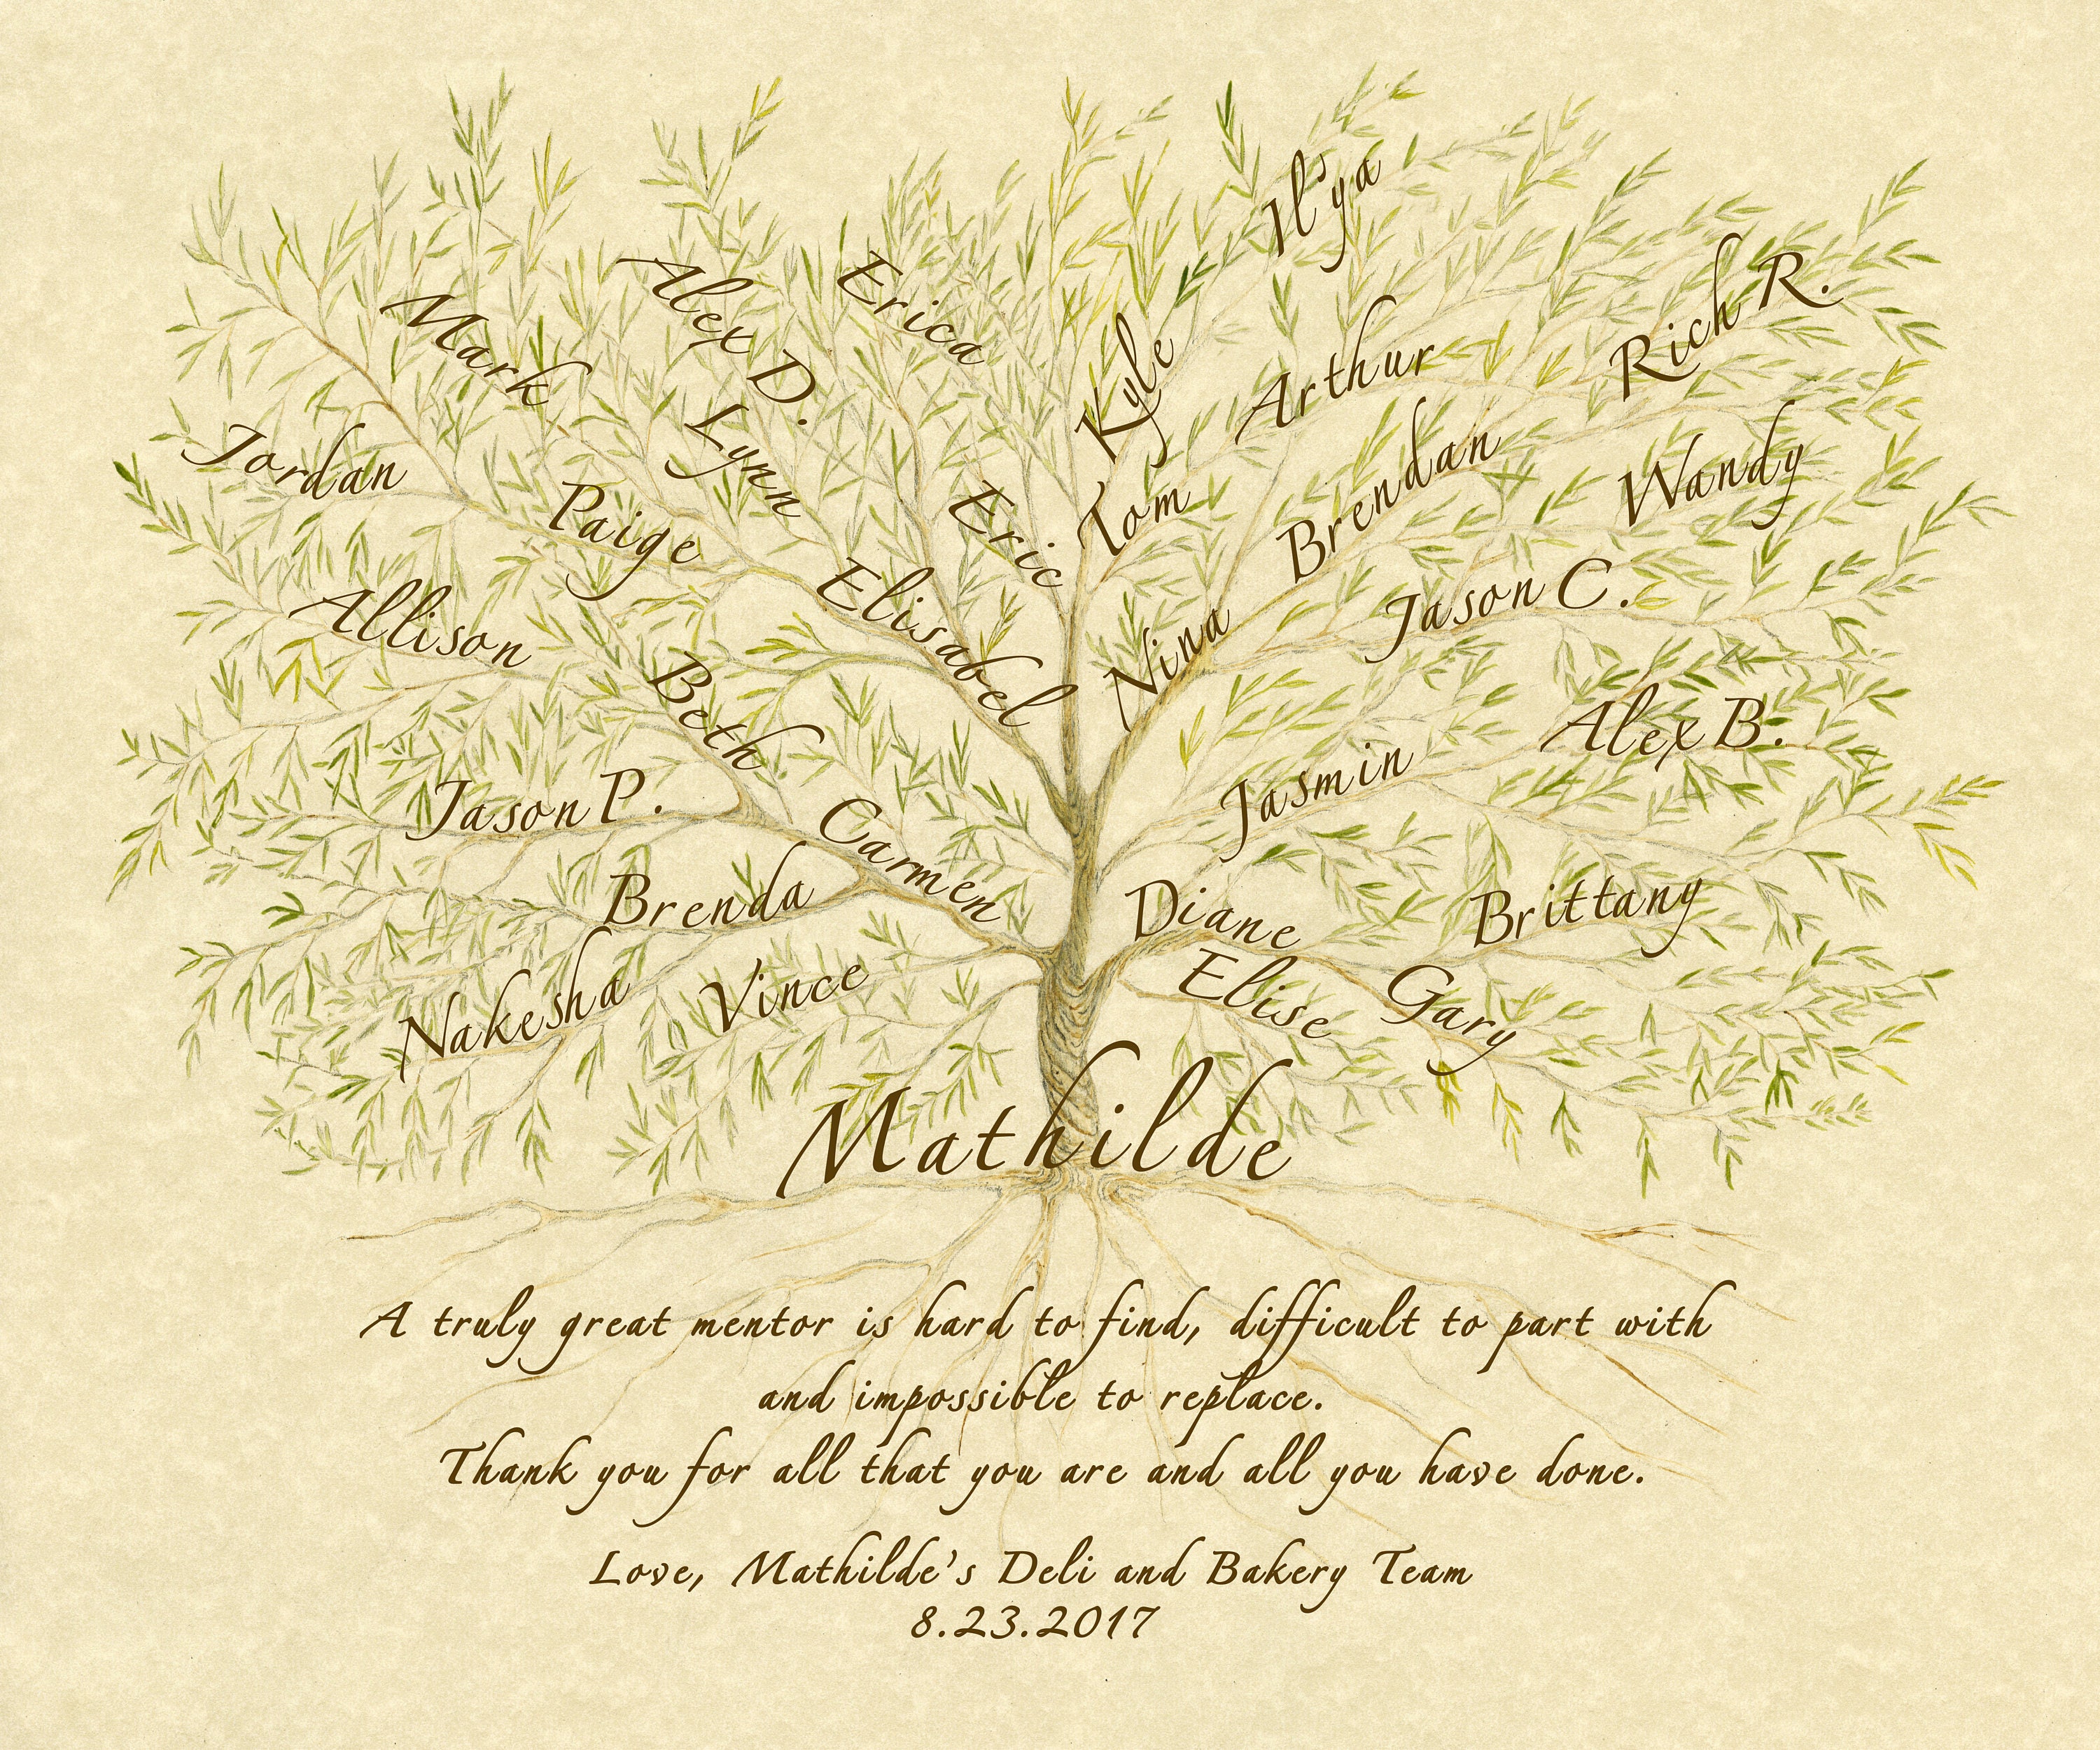 Il'ya
Erica
Alex D.
Rich R.
Mark
Kyle
Arthur
Lynn
Jordan
Brendan
Wandy
Paige
Eric
Tom
Allison
Elisabel
Jason C.
Beth
Nina
Alex B.
Jason P.
Jasmin
Carmen
Brenda
Diane
Brittany
Nakesha
Vince
Elise
Gary
Mathilde
A truly great mentor is hard to find, difficult to part with
and impossible to replace.
Thank you for all that you are and all you have done.
Love, Mathilde's Deli and Bakery Team
8.23.2017